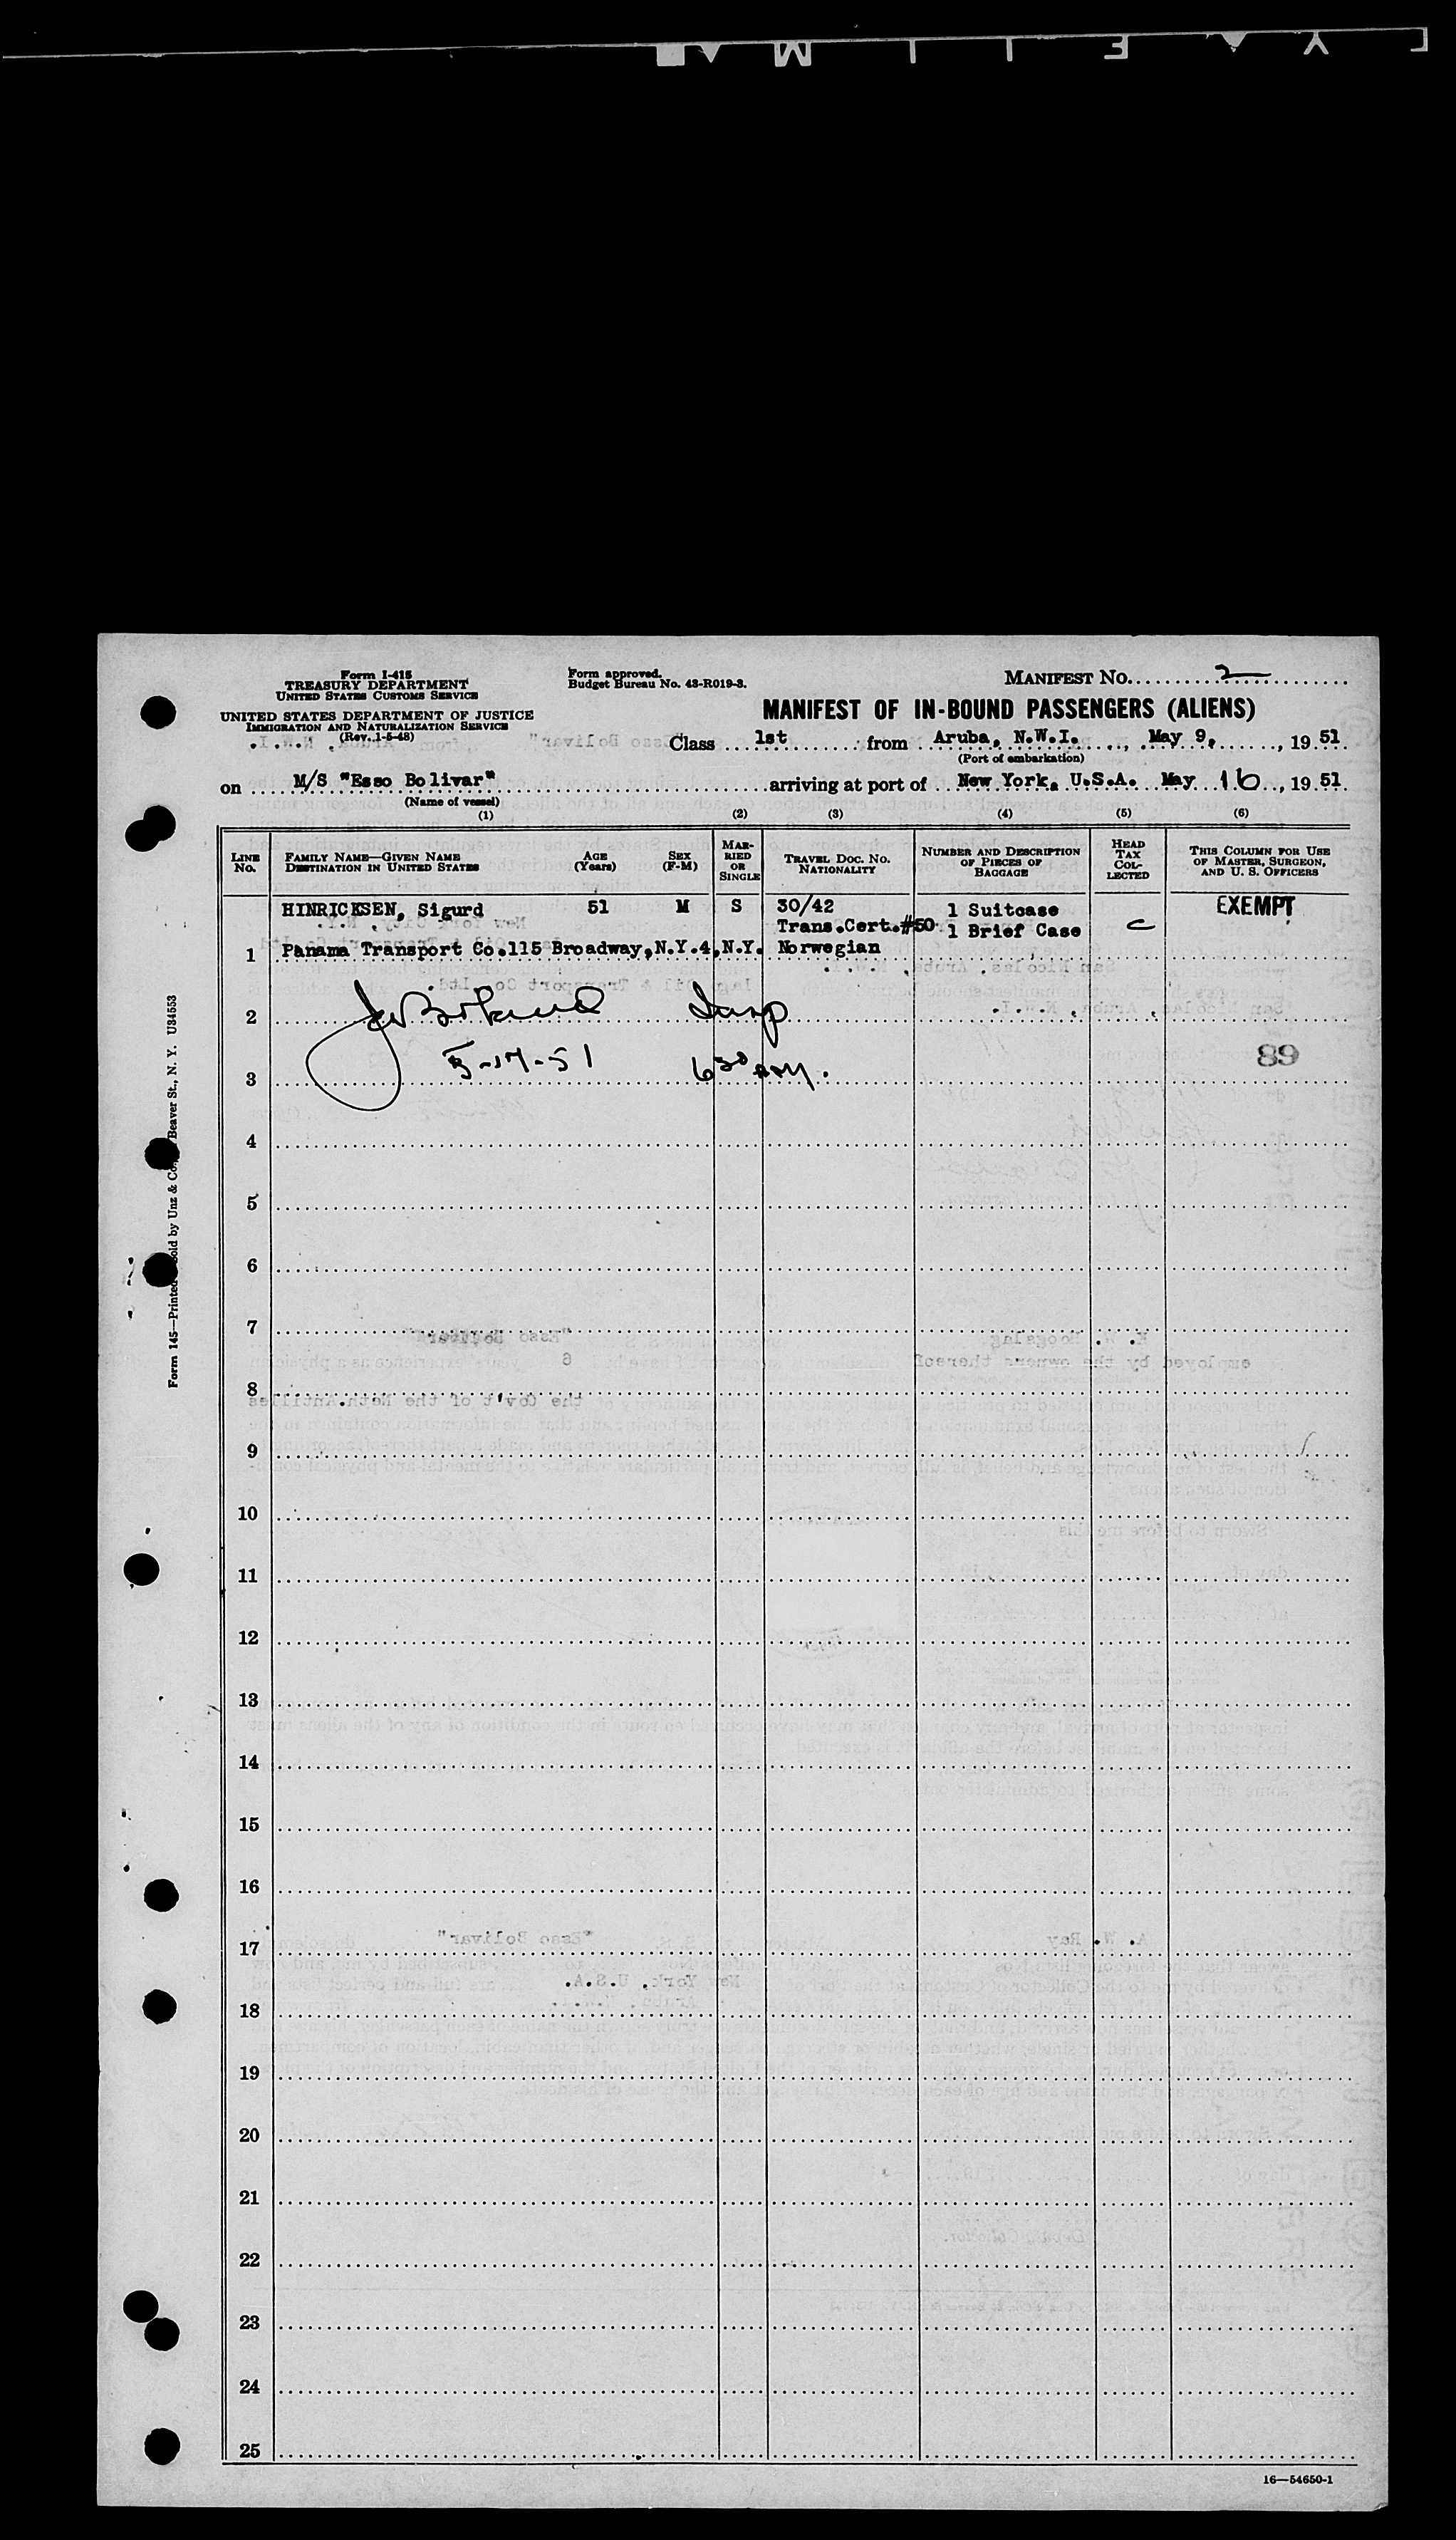 Form I-415
TREASURY DEPARTMENT
UNITED STATES CUSTOMS SERVICE
UNITED STATES DEPARTMENT OF JUSTICE
IMMIGRATION AND NATURALIZATION SERVICE
(Rev. 1-5-48)
Form approved.
Budget Bureau No. 43-R019-3.
MANIFEST NO. 2
MANIFEST OF IN-BOUND PASSENGERS (ALIENS)
Class 1st from Aruba, N.W.I., May 9, 1951
(Port of embarkation)
on M/S "Esso Bolivar" arriving at port of New York, U.S.A. May 16, 1951
(Name of vessel)
(1) (2) (3) (4) (5) (6)
LINE NO.
FAMILY NAME—GIVEN NAME
DESTINATION IN UNITED STATES
AGE (Years)
SEX (F-M)
MARRIED OR SINGLE
TRAVEL DOC. NO.
NATIONALITY
NUMBER AND DESCRIPTION OF PIECES OF BAGGAGE
HEAD TAX COLLECTED
THIS COLUMN FOR USE OF MASTER, SURGEON, AND U. S. OFFICERS
HINRICKSEN, Sigurd 51 M S 30/42 1 Suitcase EXEMPT
Trans.Cert.#50 1 Brief Case C
1 Panama Transport Co.115 Broadway,N.Y.4,N.Y. Norwegian
2 Insp
5-17-51 630 AM.
89
3
4
5
6
7
8
9
10
11
12
13
14
15
16
17
18
19
20
21
22
23
24
25
16—54650-1
Beaver St., N. Y. U34553